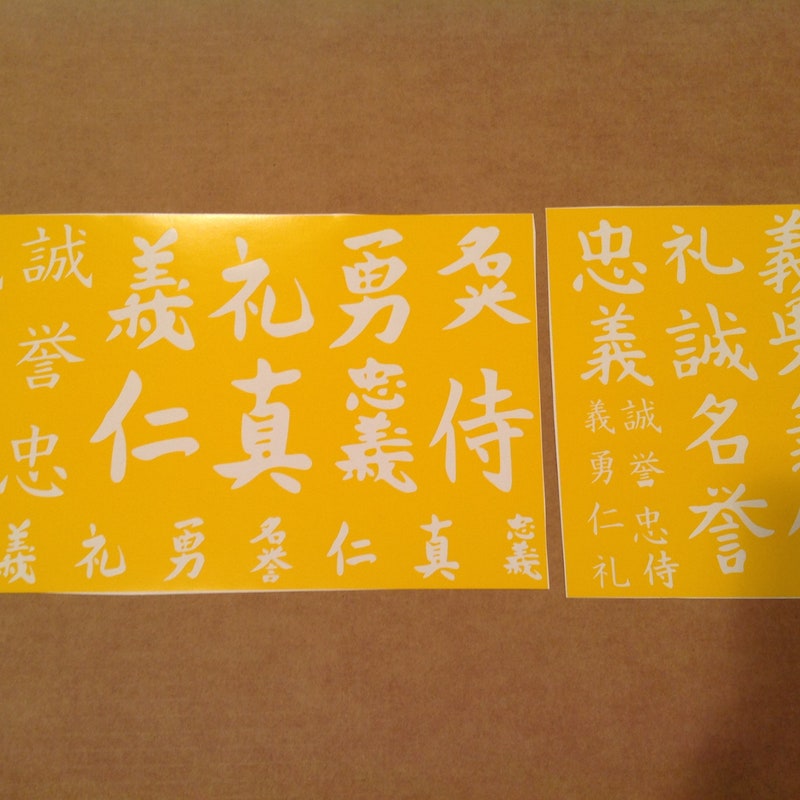 誠 義 礼 勇 名
誉
仁 真 忠義 侍
忠
義 礼 勇 名誉 仁 真 忠義
忠 礼 義
義 誠 勇
義 誠 名
勇 誉
仁 忠 誉
礼 侍